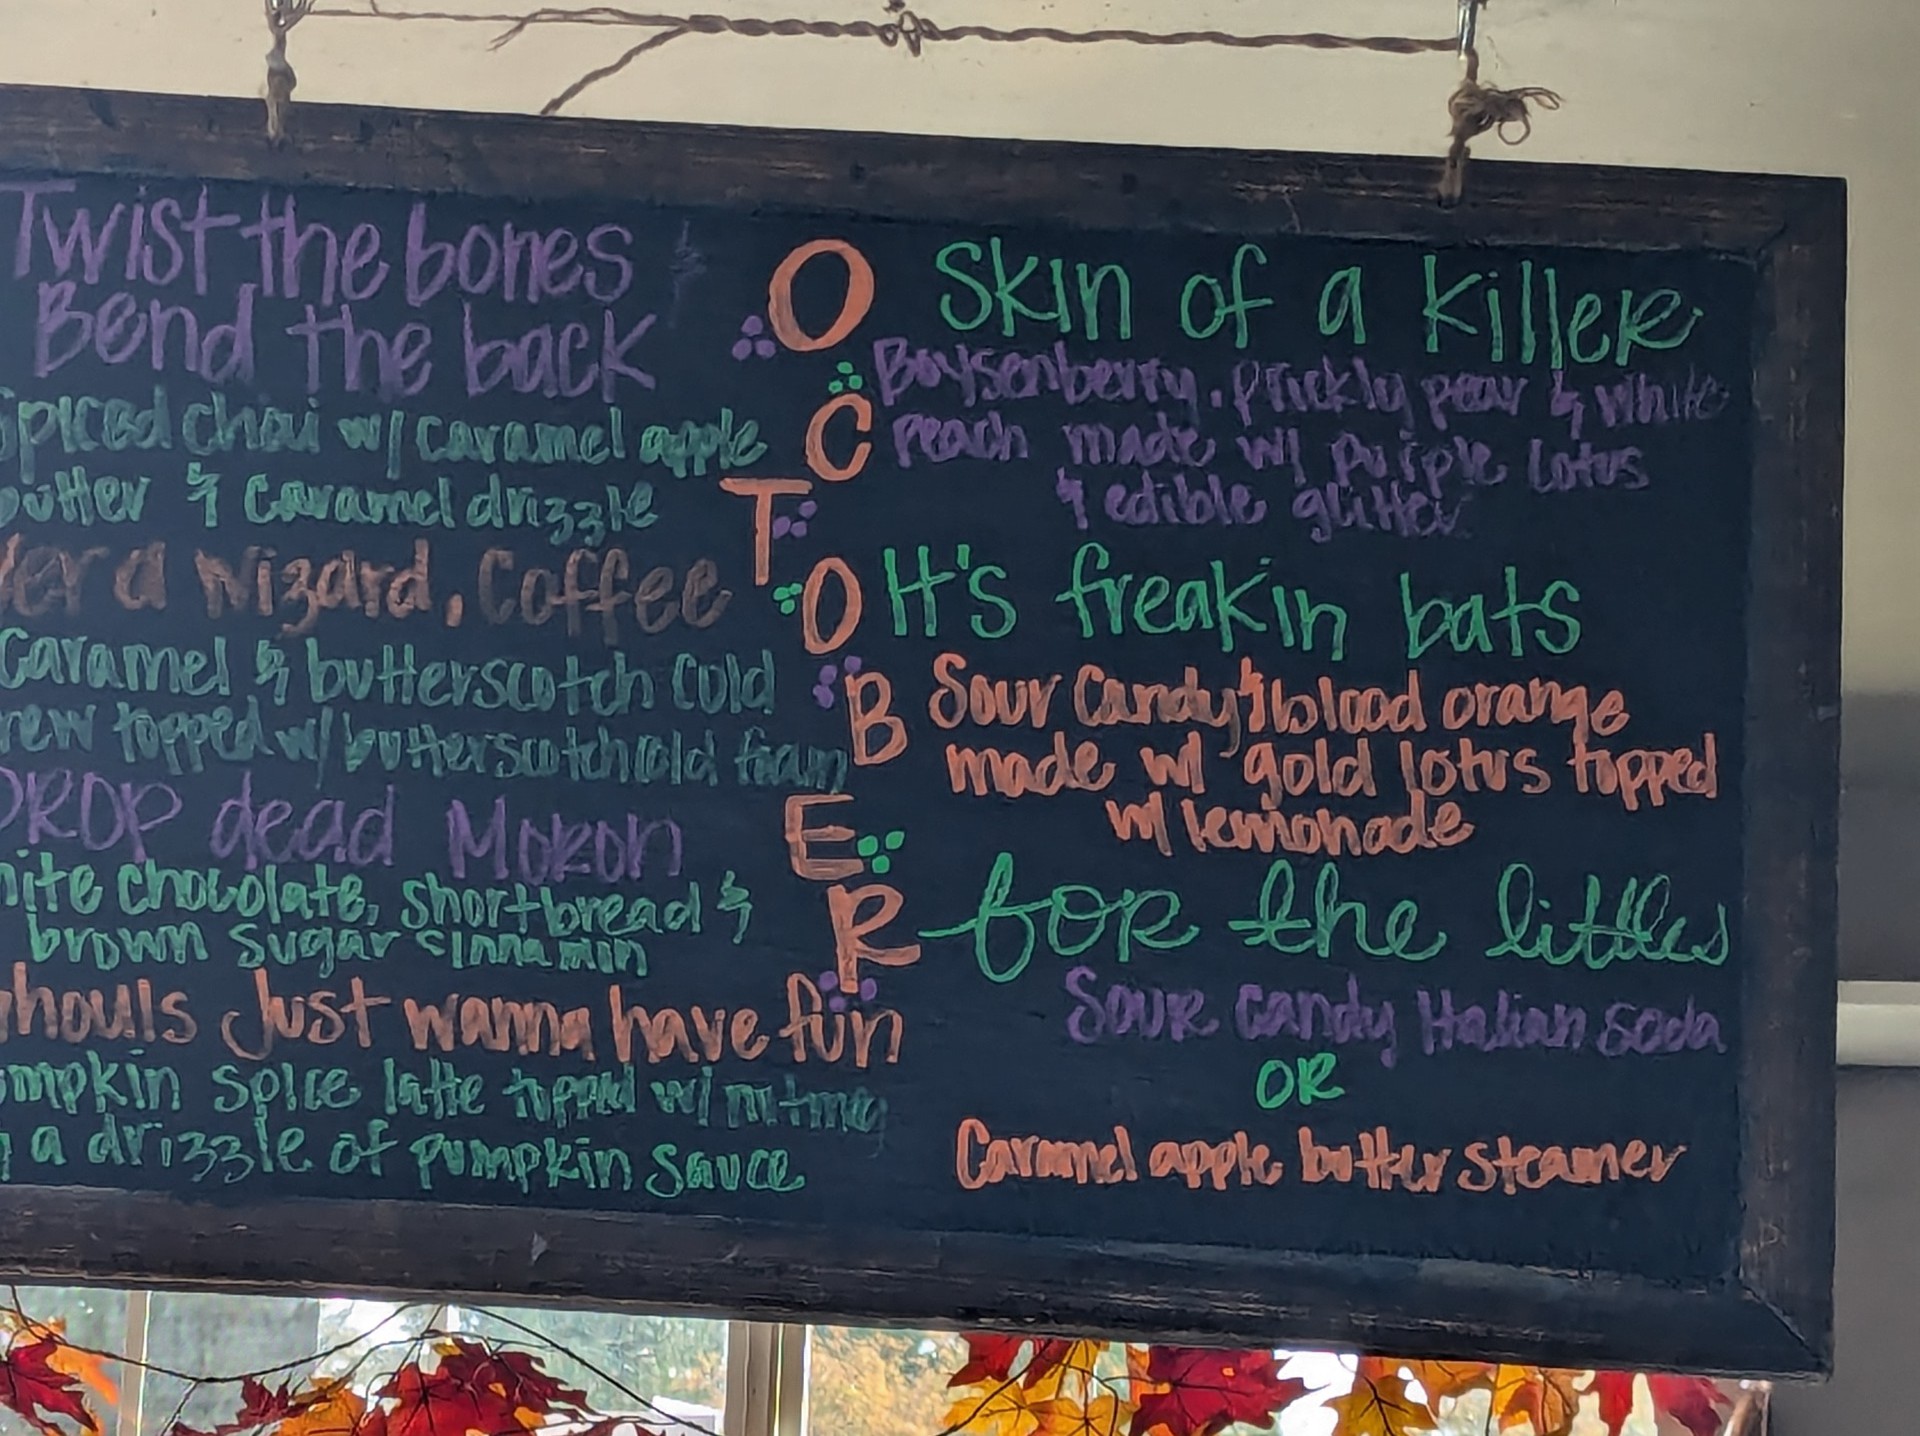 Twist the bones
Bend the back
Spiced chai w/ caramel apple
butter & caramel drizzle
er a wizard, Coffee
Caramel & butterscotch cold
rew topped w/ butterscotch cold foam
DROP dead MORON
hite chocolate, shortbread &
brown sugar cinnamin
houls Just wanna have fun
mpkin spice latte topped w/ nutmeg
a drizzle of pumpkin sauce
OCTOBER
Skin of a killer
Boysenberry, prickly pear & white
peach made w/ purple lotus
& edible glitter
It's freakin bats
Sour Candy & blood orange
made w/ gold lotus topped
w/ lemonade
for the littles
Sour candy Italian soda
OR
Caramel apple butter steamer